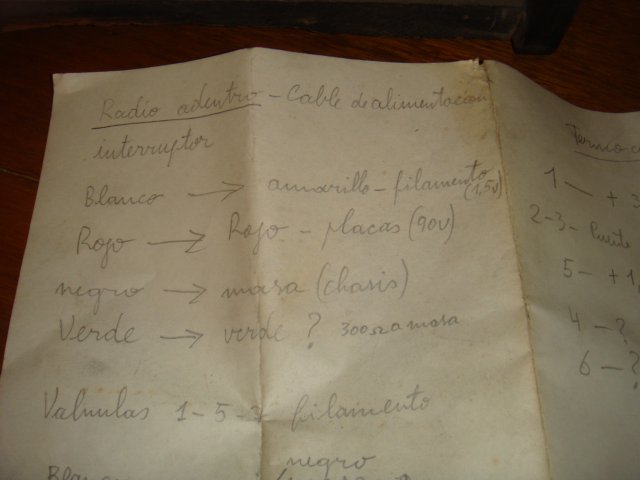 Radio adentro - Cable de alimentacion
interruptor
Blanco → amarillo - filamento (1,5v)
Rojo → Rojo - placas (90v)
negro → masa (chasis)
Verde → verde ? 300Ω a masa
Valvulas 1-5-7 filamento
negro
1 — + 3
2-3- Puente
5 - +1,
4 - ?
6 - ?